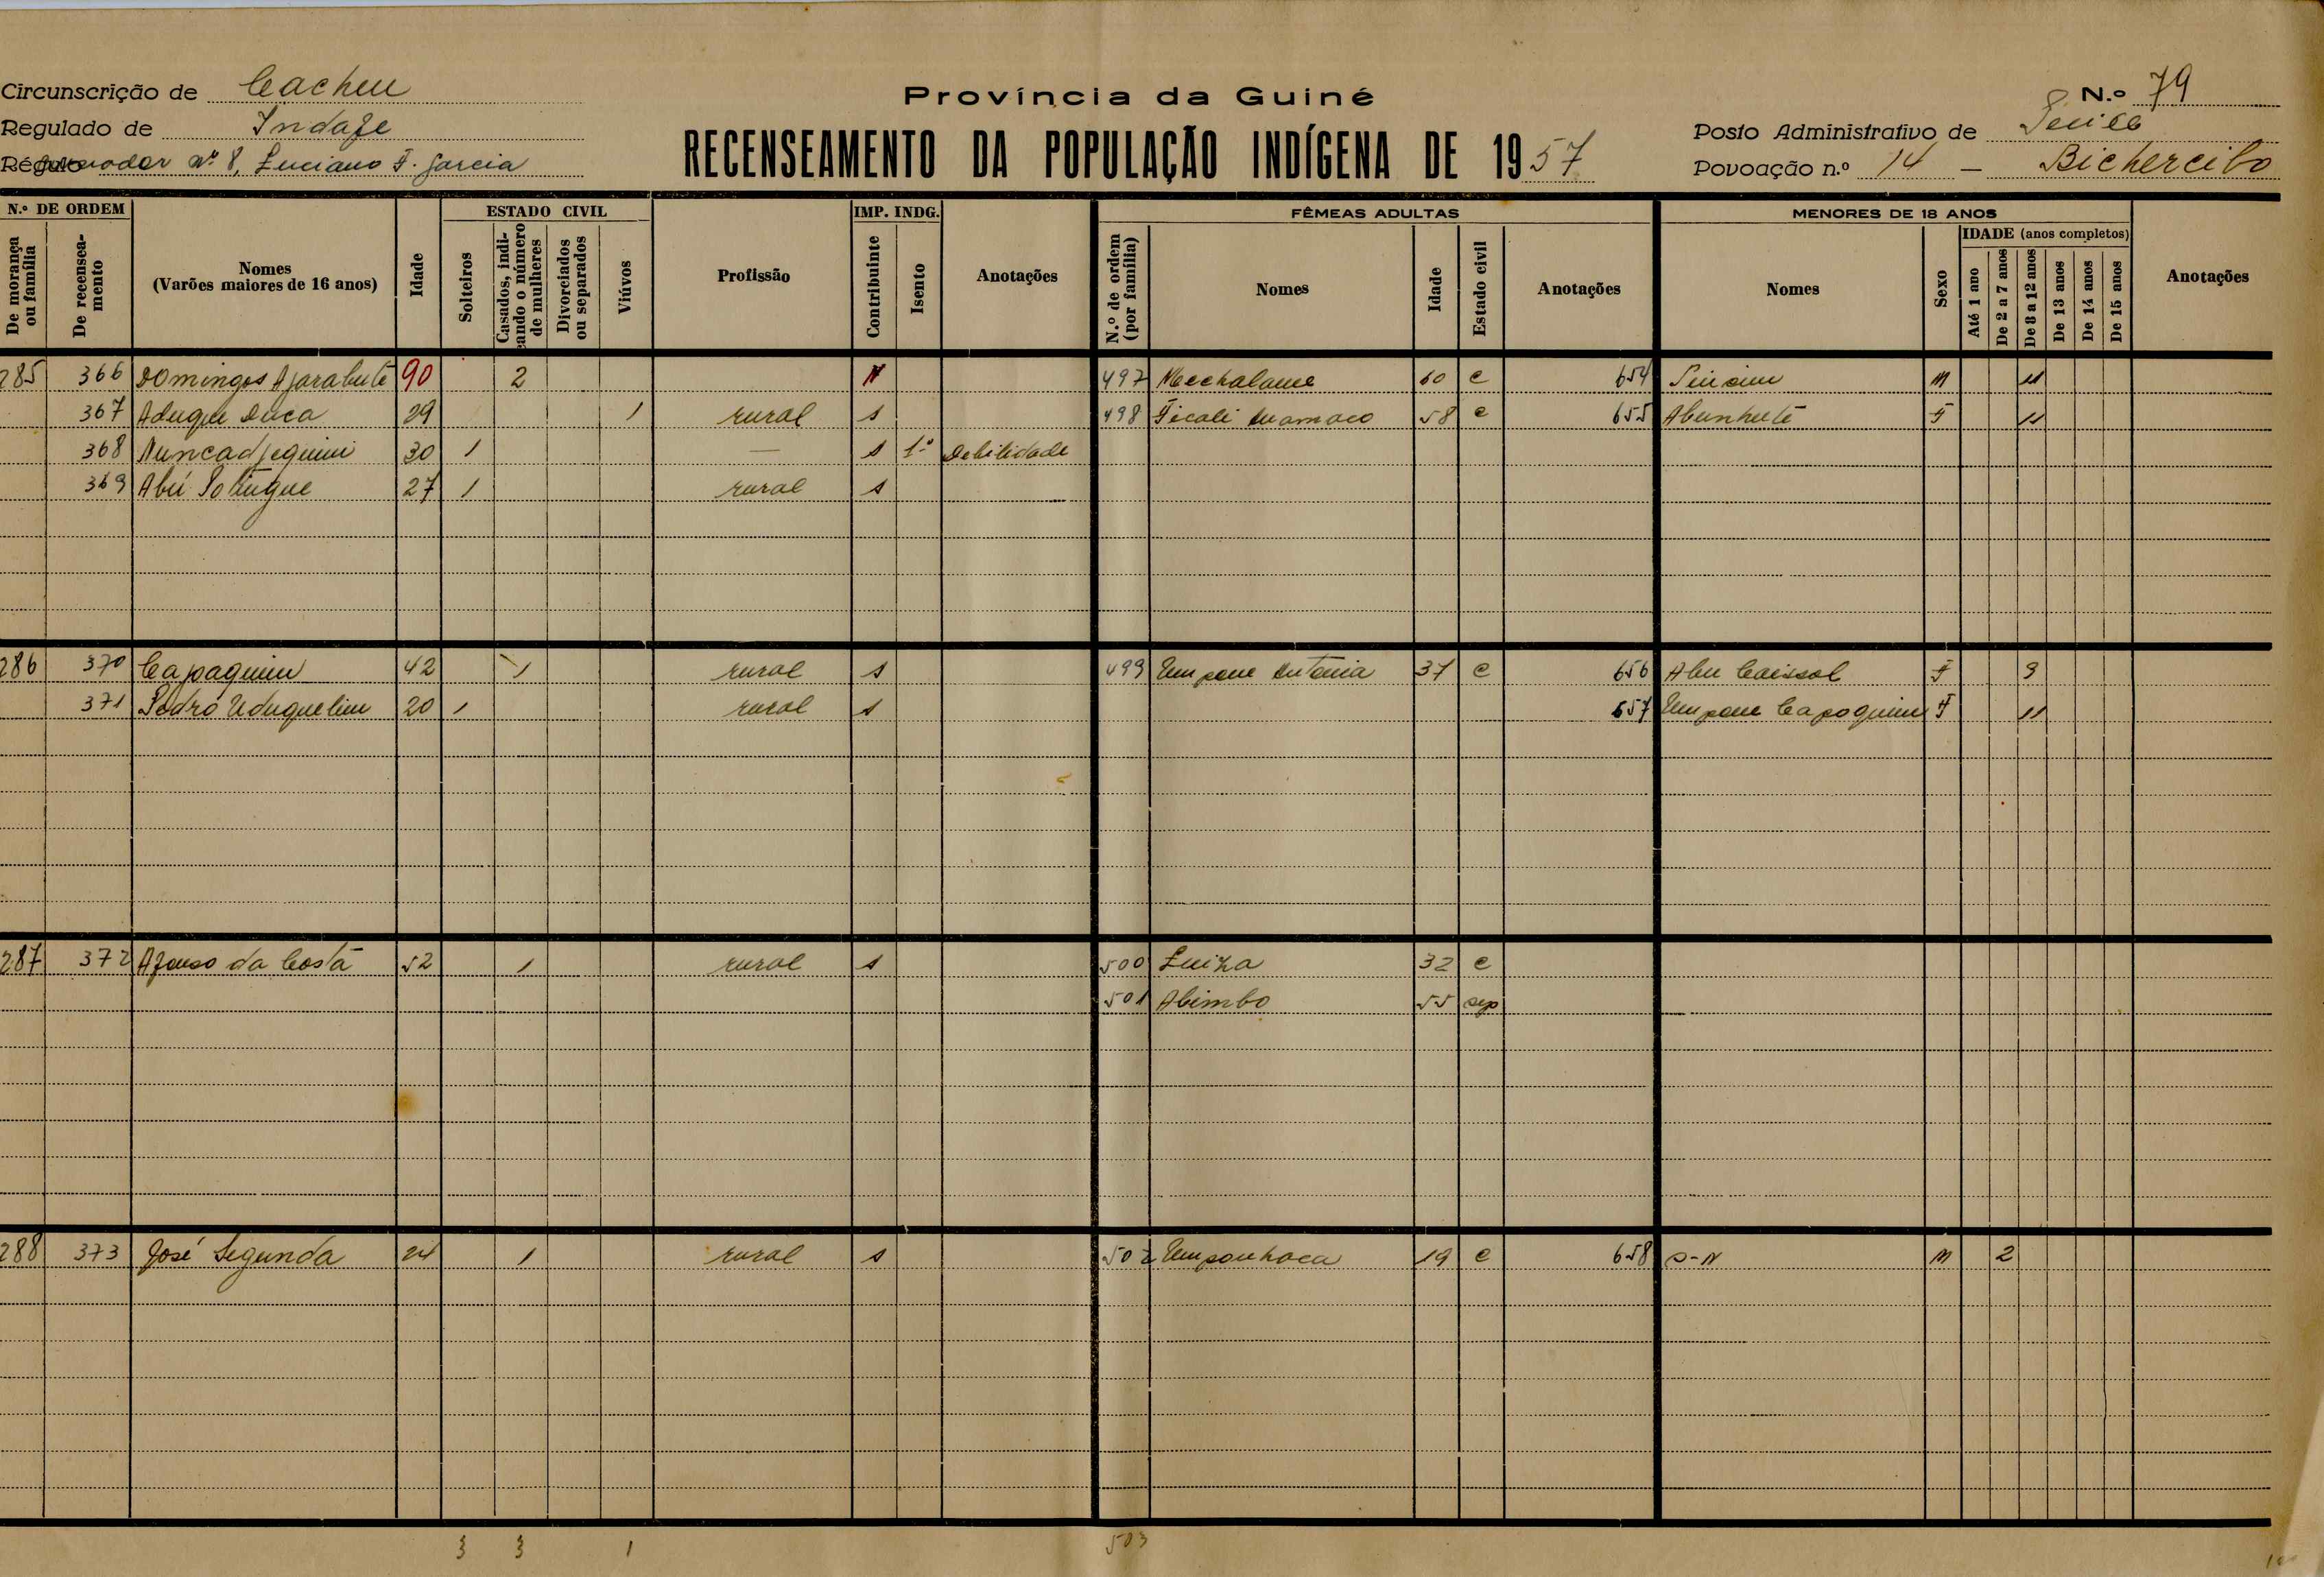 Circunscrição de Cacheu
Província da Guiné
N.º 79
Regulado de
Posto Administrativo de
Régulo nº 8, Luciano F. Garcia
RECENSEAMENTO DA POPULAÇÃO INDÍGENA DE 1957
Povoação n.º 14 —
N.º DE ORDEM
De morança ou família
De recenseamento
Nomes
(Varões maiores de 16 anos)
Idade
ESTADO CIVIL
Solteiros
Casados, indicando o número de mulheres
Divorciados ou separados
Viúvos
Profissão
IMP. INDG.
Contribuinte
Isento
Anotações
FÊMEAS ADULTAS
N.º de ordem (por família)
Nomes
Idade
Estado civil
Anotações
MENORES DE 18 ANOS
Nomes
Sexo
IDADE (anos completos)
Até 1 ano
De 2 a 7 anos
De 8 a 12 anos
De 13 anos
De 14 anos
De 15 anos
Anotações
285 366 Domingos 90 2 N 497 60 c 654 M 11
367 Aduque Duca 29 1 rural s 498 58 c 655 Abunhuté F 11
368 30 1 — s 1º Debilidade
369 Abú 27 1 rural s
286 370 Capaquim 42 1 rural s 499 37 c 656 Abu F 9
371 Pedro 20 1 rural s 657 F 11
287 372 Afonso da Costa 52 1 rural s 500 Luiza 32 c
501 Abimbo 55 sep
288 373 José Segunda 24 1 rural s 502 19 c 658 S-N M 2
3 3 1 503